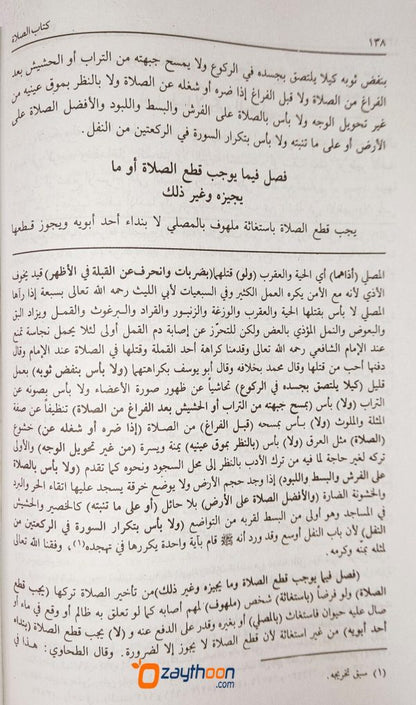 ١٣٨
كتاب الصلاة
بنفض ثوبه كيلا يلتصق بجسده في الركوع ولا يمسح جبهته من التراب أو الحشيش بعد
الفراغ من الصلاة ولا قبل الفراغ إذا ضره أو شغله عن الصلاة ولا بالنظر بموق عينيه من
غير تحويل الوجه ولا بأس بالصلاة على الفرش والبسط واللبود والأفضل الصلاة على
الأرض أو على ما تنبته ولا بأس بتكرار السورة في الركعتين من النفل.
فصل فيما يوجب قطع الصلاة أو ما
يجيزه وغير ذلك
يجب قطع الصلاة باستغاثة ملهوف بالمصلي لا بنداء أحد أبويه ويجوز قطعها
المصلي (أذاهما) أي الحية والعقرب (ولو) قتلها (بضربات وانحرف عن القبلة في الأظهر) قيد بخوف
الأذى لأنه مع الأمن يكره العمل الكثير وفي السبعيات لأبي الليث رحمه الله تعالى بسبعة إذا رآها
المصلي لا بأس بقتلها الحية والعقرب والوزغة والزنبور والقراد والبرغوث والقمل ويزاد البق
والبعوض والنمل المؤذي بالعض ولكن للتحرز عن إصابة دم القمل أولى لئلا يحمل نجاسة تمنع
عند الإمام الشافعي رحمه الله تعالى وقدمنا كراهة أحد القملة وقتلها في الصلاة عند الإمام وقال
دفنها أحب من قتلها وقال محمد بخلافه وقال أبو يوسف بكراهتهما (ولا بأس بنفض ثوبه) بعمل
قليل (كيلا يلتصق بجسده في الركوع) تحاشياً عن ظهور صورة الأعضاء ولا بأس بصونه عن
التراب (ولا) بأس (بمسح جبهته من التراب أو الحشيش بعد الفراغ من الصلاة) تنظيفاً عن صفة
المثلة والملوث (ولا) بأس بمسحه (قبل الفراغ) من الصلاة (إذا ضره أو شغله عن) خشوع
(الصلاة) مثل العرق (ولا) بأس (بالنظر بموق عينيه) يمنة ويسرة (من غير تحويل الوجه) والأولى
تركه لغير حاجة لما فيه من ترك الأدب بالنظر إلى محل السجود ونحوه كما تقدم (ولا بأس بالصلاة
على الفرش والبسط واللبود) إذا وجد حجم الأرض ولا يوضع خرقة يسجد عليها اتقاء الحر والبرد
والخشونة الضارة (والأفضل الصلاة على الأرض) بلا حائل (أو على ما تنبته) كالحصير والحشيش
في المساجد وهو أولى من البسط لقربه من التواضع (ولا بأس بتكرار السورة في الركعتين من
النفل) لأن باب النفل أوسع وقد ورد أنه ﷺ قام بآية واحدة يكررها في تهجده(١). وفقنا الله تعالى
لمثله بمنه وكرمه.
(فصل فيما يوجب قطع الصلاة وما يجيزه وغير ذلك) من تأخير الصلاة تركها (يجب قطع
الصلاة) ولو فرضاً (باستغاثة) شخص (ملهوف) لهم أصابه كما لو تعلق به ظالم أو وقع في ماء أو
صال عليه حيوان فاستغاث (بالمصلي) أو بغيره وقدر على الدفع عنه و (لا) يجب قطع الصلاة (بنداء
أحد أبويه) من غير استغاثة لأن قطع الصلاة لا يجوز إلا لضرورة. وقال الطحاوي: هذا في
(١) سبق تخريجه.
Ozaythoon
.com